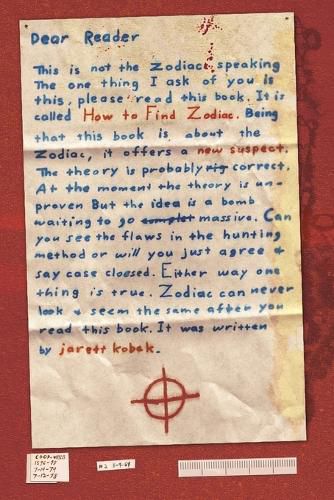 Dear Reader
This is not the Zodiac speaking
The one thing I ask of you is
this, please read this book. It is
called How to Find Zodiac. Being
that this book is about the
Zodiac, it offers a new suspect.
The theory is probably rig correct.
At the moment the theory is un-
proven But the idea is a bomb
waiting to go complet massive. Can
you see the flaws in the hunting
method or will you just agree &
say case cloesed. Either way one
thing is true. Zodiac can never
look & seem the same after you
read this book. It was written
by jarett kobek.